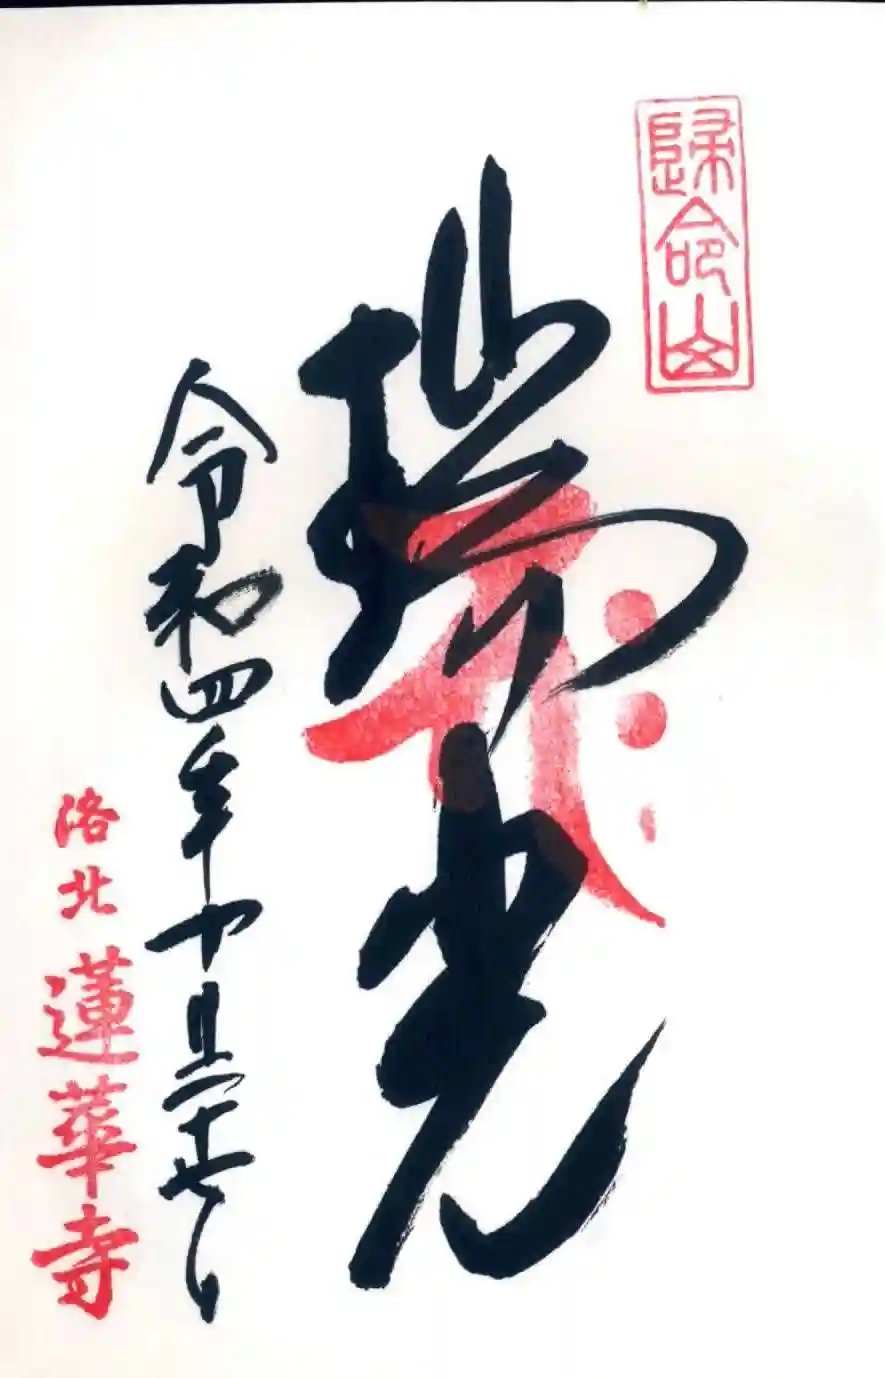 歸命山
瑞光
令和四年十月二十七日
洛北 蓮華寺